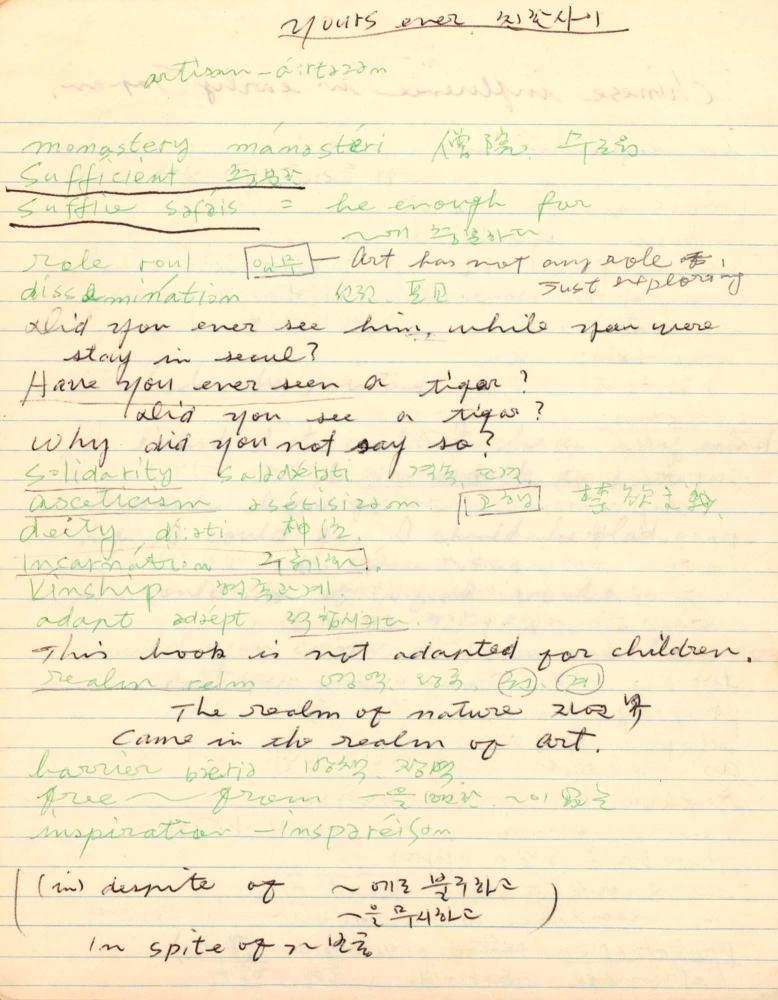 yours ever 친한사이
artisan - áirtəzən
monastery mánəstéri 僧院. 수도원
Sufficient 충분한
suffice səfáis = be enough for
~에 충분하다.
role roul 임무 - Art has not any role
Just exploring
dissemination 선전. 보급
Did you ever see him, while you were
stay in seoul?
Have you ever seen a tigar?
Did you see a tigar?
Why did you not say so?
Solidarity 결속,
asceticism əsétisizəm 고행 禁欲主義.
deity, dí:əti 神位.
incarnation
Kinship 혈족관계.
adapt ədǽpt 적합시키다.
This book is not adapted for children.
realm relm 영역. 왕국, 계
The realm of nature 자연界
Came in the realm of art.
barrier bǽriə 장벽.
free ~ from ~이 없는
inspiration - inspəréiʃən
(in) despite of ~에도 불구하고
~을 무시하고
in spite of 가 보통